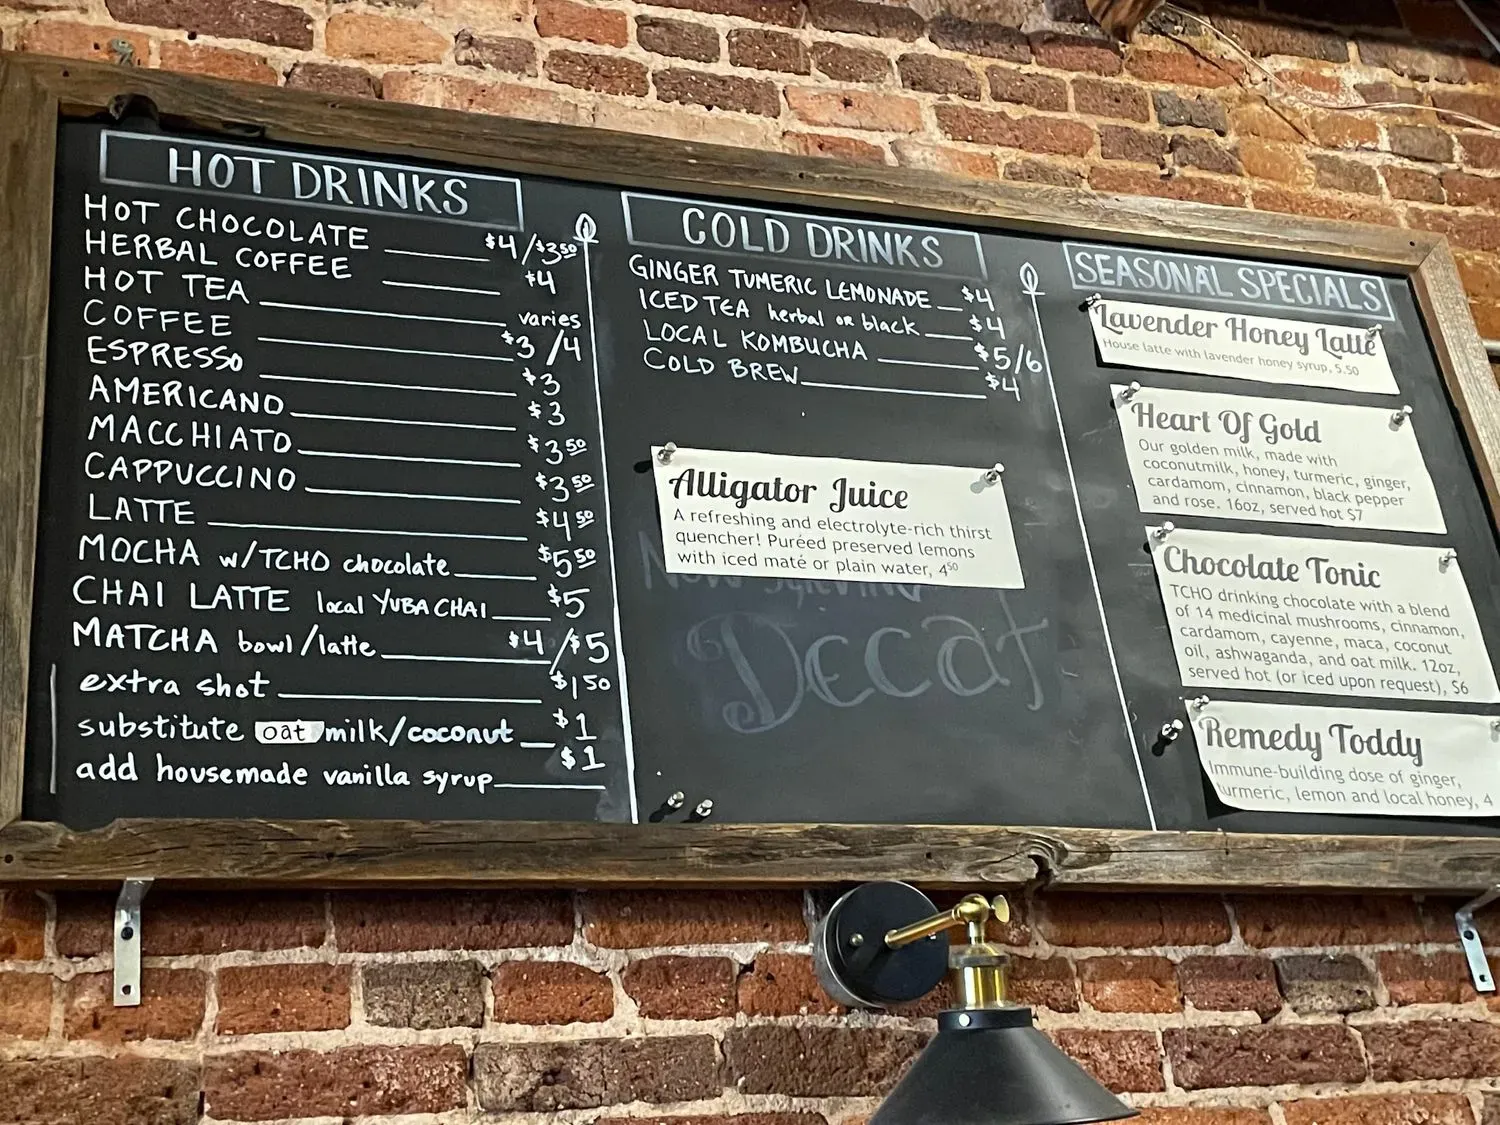 HOT DRINKS
HOT CHOCOLATE $4/$3.50
HERBAL COFFEE $4
HOT TEA varies
COFFEE $3/4
ESPRESSO $3
AMERICANO $3
MACCHIATO $3.50
CAPPUCCINO $3.50
LATTE $4.50
MOCHA w/TCHO chocolate $5.50
CHAI LATTE local YUBA CHAI $5
MATCHA bowl/latte $4/$5
extra shot $1.50
substitute oat milk/coconut $1
add housemade vanilla syrup $1
COLD DRINKS
GINGER TUMERIC LEMONADE $4
ICED TEA herbal or black $4
LOCAL KOMBUCHA $5/6
COLD BREW $4
Alligator Juice
A refreshing and electrolyte-rich thirst
quencher! Puréed preserved lemons
with iced maté or plain water, 4.50
Now serving
Decaf
SEASONAL SPECIALS
Lavender Honey Latte
House latte with lavender honey syrup, 5.50
Heart Of Gold
Our golden milk, made with
coconutmilk, honey, turmeric, ginger,
cardamom, cinnamon, black pepper
and rose. 16oz, served hot $7
Chocolate Tonic
TCHO drinking chocolate with a blend
of 14 medicinal mushrooms, cinnamon,
cardamom, cayenne, maca, coconut
oil, ashwaganda, and oat milk. 12oz,
served hot (or iced upon request), $6
Remedy Toddy
Immune-building dose of ginger,
turmeric, lemon and local honey, 4